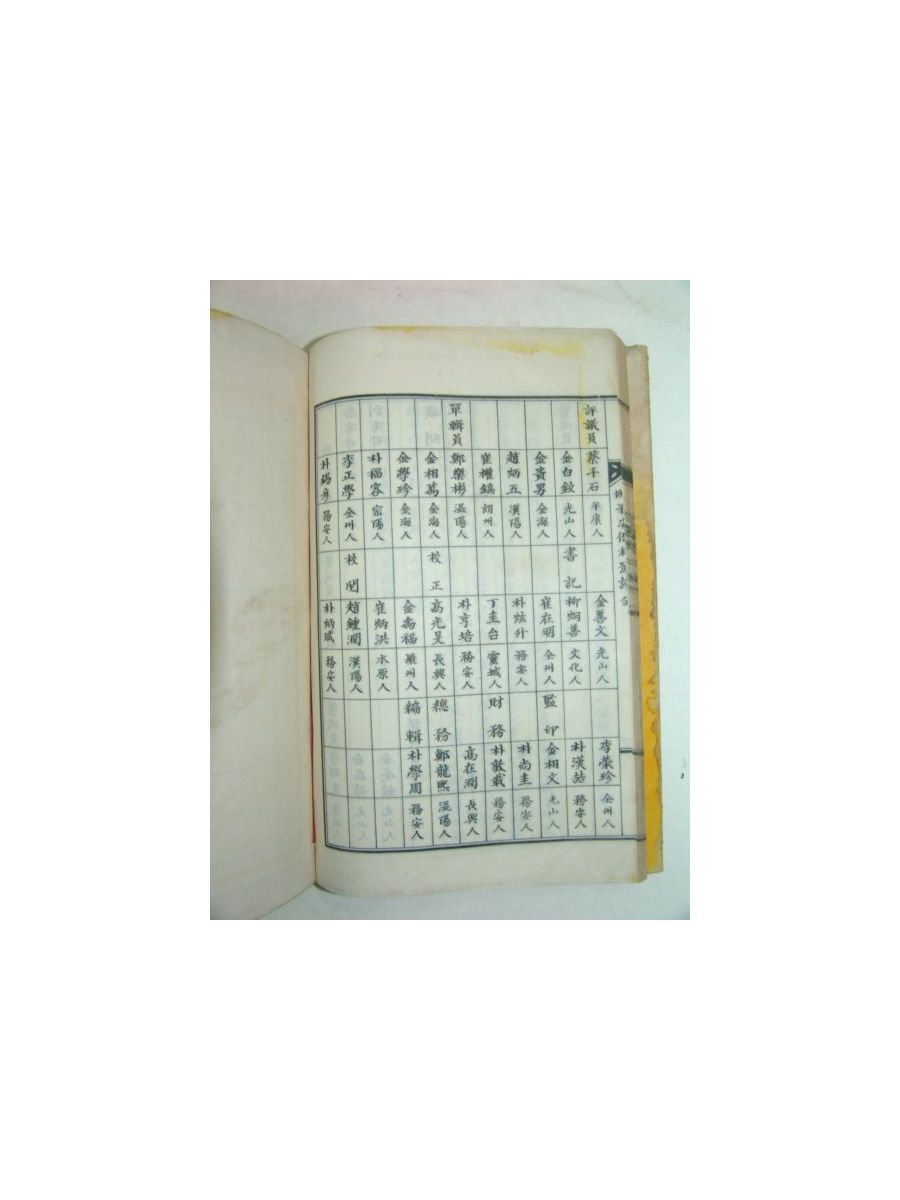 評議員 蔡千石 平康人
金白欽 光山人
金貴男 金海人
趙炳五 漢陽人
崔權鎬 朗州人
單輯員 鄭樂彬 溫陽人
金相萬 金海人
金學珍 金海人
朴福容 密陽人
李正學 全州人
朴錫彦 務安人
金善文 光山人
書記 柳炯善 文化人
崔在明 全州人
朴炫升 務安人
丁圭台 靈城人
朴亨培 務安人
校正 高光旻 長興人
金禹福 羅州人
崔炳洪 水原人
校閱 趙鍾潤 漢陽人
朴炳瑊 務安人
李榮珍 全州人
朴漢喆 務安人
監印 金相文 光山人
朴尚圭 務安人
財務 朴敦 務安人
高在潤 長興人
總務 鄭龍熙 溫陽人
編輯 朴學周 務安人